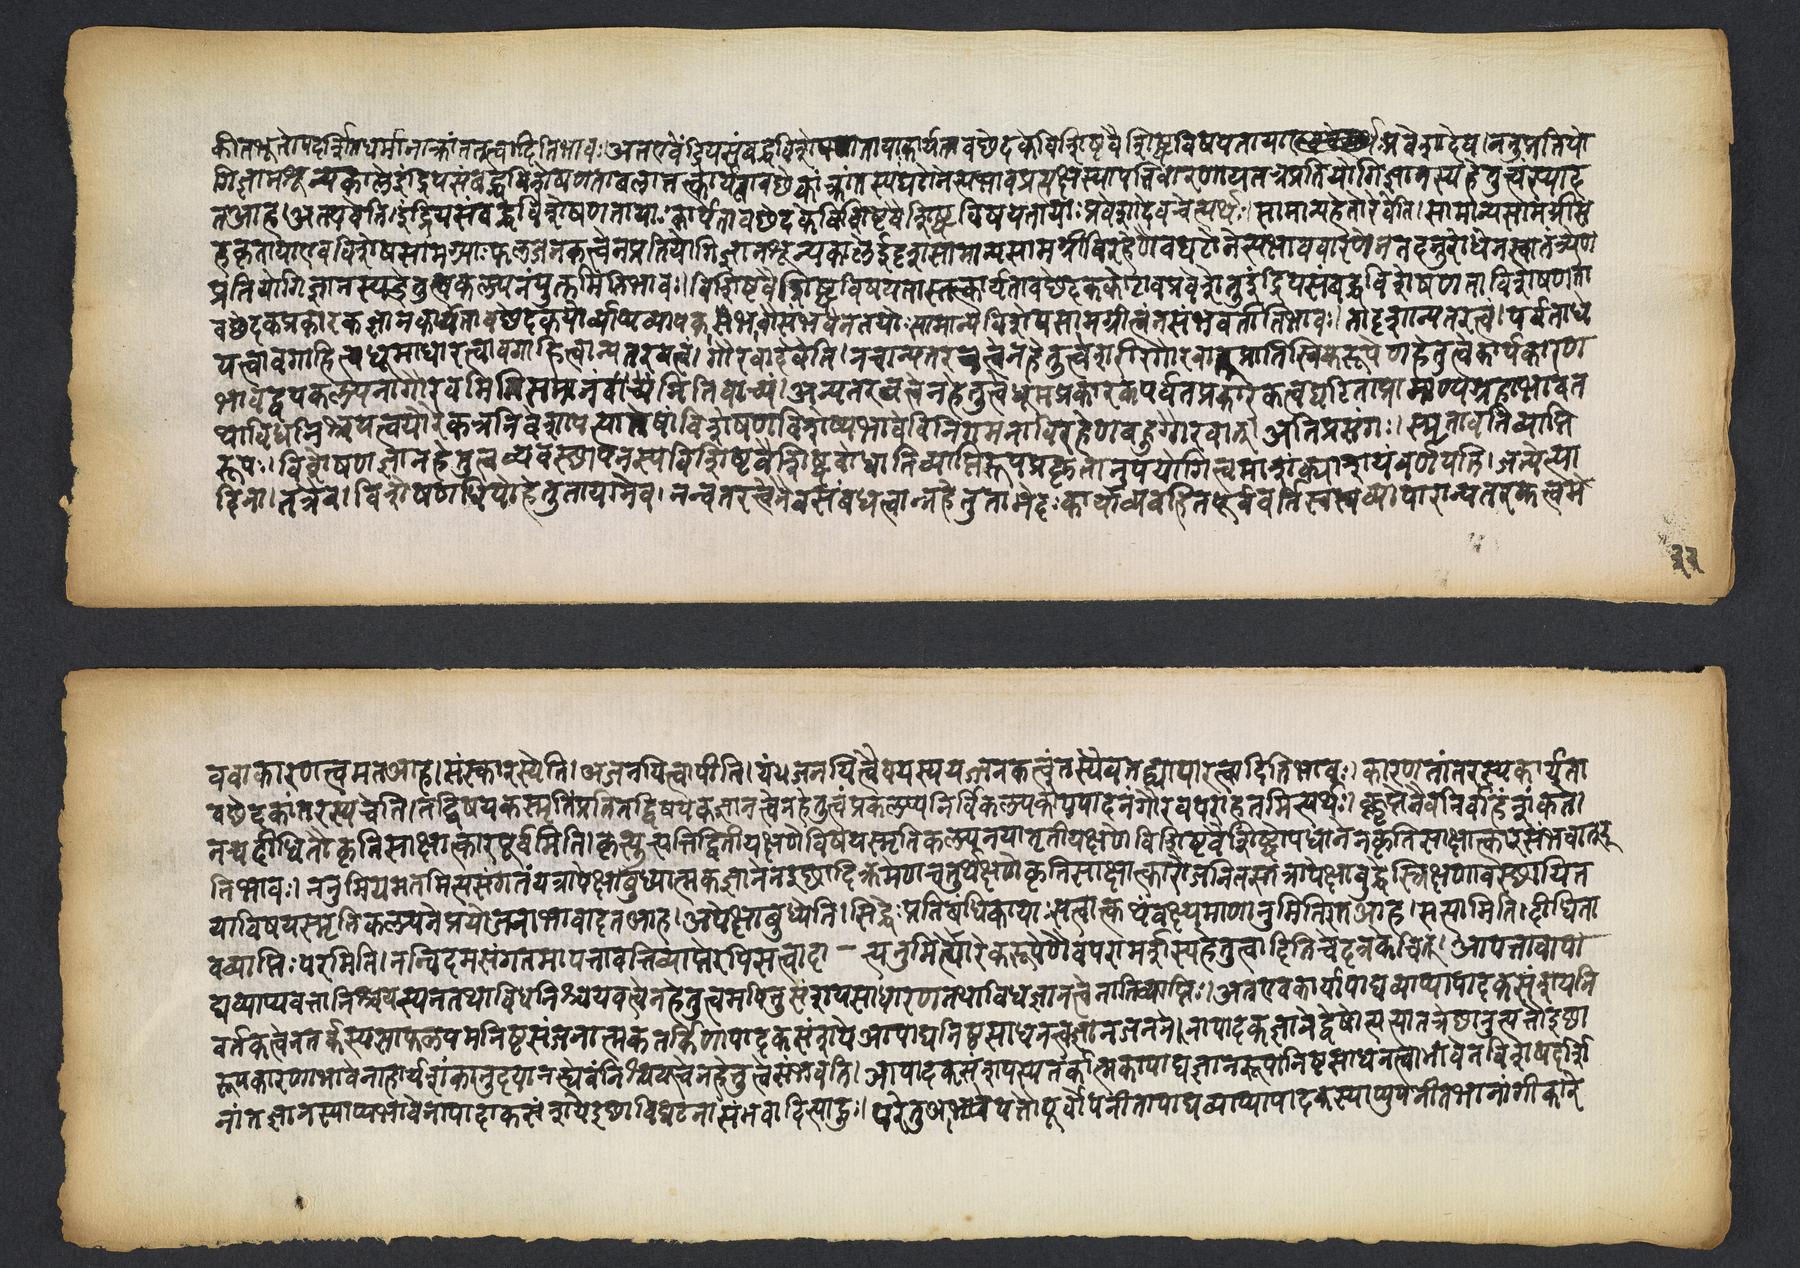 कीतभूतलोपदर्शितधर्मानाक्रांततत्वादितिभावः।अतएवेंद्रियसंबद्धविशेषणतायाकार्यतावछेदकेविशिष्टवैशिष्ट्यविषयतायाः प्रवेशादेव।ननुप्रतियो
गिज्ञानशून्यकालेइंद्रियसंबद्धविशेषणताबलात्तत्कार्यतावछेदकाक्रांतस्यघटोनेत्यभावप्रत्यक्षस्यापत्तिवारणायतत्रप्रतियोगिज्ञानस्यहेतुत्वंस्याद
तआह।अतएवेति।इंद्रियसंबद्धविशेषणतायाःकार्यतावछेदकेविशिष्टवैशिष्ट्यविषयतायाःप्रवेशादेवचेत्यर्थः।सामान्यहेतोरेवेति।सामान्यसामग्रीस
हकृतायाएवविशेषसामग्र्याःफलजनकत्वेनप्रतियोगिज्ञानशून्यकालेईदृशसामान्यसामग्रीविरहेणैवघटोनेत्यभाववारणेनतदनुरोधेनस्वातंत्र्येण
प्रतियोगिज्ञानस्यहेतुत्वकल्पनंयुक्तमितिभावः।विशिष्टवैशिष्ट्यविषयतास्तत्कार्यतावछेदककोटावप्रवेशेतुइंद्रियसंबद्धविशेषणताविशेषणता
वछेदकप्रकारकज्ञानकार्यतावछेदकयोर्व्याप्यव्यापकसंभवासंभवेनतयोःसामान्यविशेषसामग्रीत्वंनसंभवतीतिभावः।तादृशान्यतरत्वं।पर्वताधे
यत्वावगाहित्वधूमाधारत्वावगाहित्वान्यतरवत्वं।गौरवादेवेति।नचान्यतरत्वेनहेतुत्वेशरीरगौरवात् प्रातिस्विकरूपेणहेतुत्वेकार्यकारण
भावद्वयकल्पनागौरवमितिसमानंवाच्यमितिवाच्यं।अन्यतरत्वेनहेतुत्वेधूमप्रकारकपर्वतप्रकारकत्वघटिताप्रामाण्यग्रहाभावत
थाविधनिश्चयत्वयोरेकत्रनिवेशोपत्यातेषांविशेषणविशेष्यभावेविनिगमनाविरहेणबहुगौरवात्।अतिप्रसंगः।स्मृतावतिव्याप्ति
रूपः।विशेषणज्ञानहेतुत्वव्यवस्थापनस्यविशिष्टवैशिष्ट्यबोधातिव्याप्तिरूपप्रकृतानुपयोगित्वमाशंक्याशयंवर्णयति।जन्येत्या
दिना।तत्रैव।विशेषणधियोहेतुतायामेव।नन्वतरत्वेनैवसंबंधत्वान्नहेतुताभेदःकार्याव्यवहितपूर्ववर्तिस्वस्वव्यापारान्यतरकत्वमे
३३
ववाकारणत्वमतआह।संस्कारस्येति।अजनयित्वापीति।यंयंजनयित्वैवयस्ययज्जनकत्वंतस्यैवतद्व्यापारत्वादितिभावः।कारणतांतरस्यकार्यता
वछेदकांतरस्यचेति।तद्विषयकस्मृतिंप्रतितद्विषयकज्ञानत्वेनहेतुत्वंप्रकल्प्यनिर्विकल्पकोपपादनंगौरवपराहतमित्यर्थः।कॢप्तेनैवनिर्वाहेशंकते।
नचदीधितौकृतिसाक्षात्कारपूर्वमिति।कृत्युत्पत्तिद्वितीयक्षणेविषयस्मृतिकल्पनयातृतीयक्षणेविशिष्टवैशिष्ट्योपधानेनकृतिसाक्षात्कारसंभवादि
तिभावः।ननुमियमतमित्यसंगतंयत्रापेक्षाबुध्यात्मकज्ञानेनइच्छादिक्रमेणचतुर्थक्षणेकृतिसाक्षात्कारोजनितस्तत्रापेक्षाबुद्धेस्त्रिक्षणावस्थायित
याविषयस्मृतिकल्पनेप्रयोजनाभावादतआह।अपेक्षाबुध्येति।सिद्धेःप्रतिबंधिकायाःसत्वात्कथंवक्ष्यमाणानुमितिरतआह।सत्यामिति।दीधिता
वव्याप्तिःपरमिति।नन्विदमसंगतमापत्तावतिव्याप्तेरपिसत्वादा–त्यनुमित्योरेकरूपेणैवपरामर्शस्यहेतुत्वादितिचेदत्रकश्चित्।आपत्तावापा
द्यव्याप्यवत्तानिश्चयस्यनतथाविधनिश्चयत्वेनहेतुत्वमपितुसंशयसाधारणतथाविधज्ञानत्वेनातिव्याप्तिः।अतएवकार्यापाद्यव्याप्यापादकसंशयनि
वर्तकत्वेनतर्कस्यसाफल्यमनिष्टसंजनात्मकतर्केणापादकसंशयेआपाद्यनिष्ठसाधनत्वज्ञानजनने।नापादकज्ञानेद्वेषोत्पत्त्यातत्रेच्छानुत्पत्तौइच्छा
रूपकारणाभावेनाहार्यशंकानुदयानस्यैवंनिश्चयत्वेनहेतुत्वंसंभवति।आपादकसंशयस्यतर्कात्मकापाद्यज्ञानरूपानिष्टसाधनत्वाभावेनविशेषदर्शि
नांतज्ज्ञानस्याप्यभावेनापादाकसंशयेइच्छाविघटनासंभवादित्याहुः।परेतुआपत्तौपूर्वोपनीतापाद्यव्याप्यापादकस्याप्युपनीतभानांगीकारे